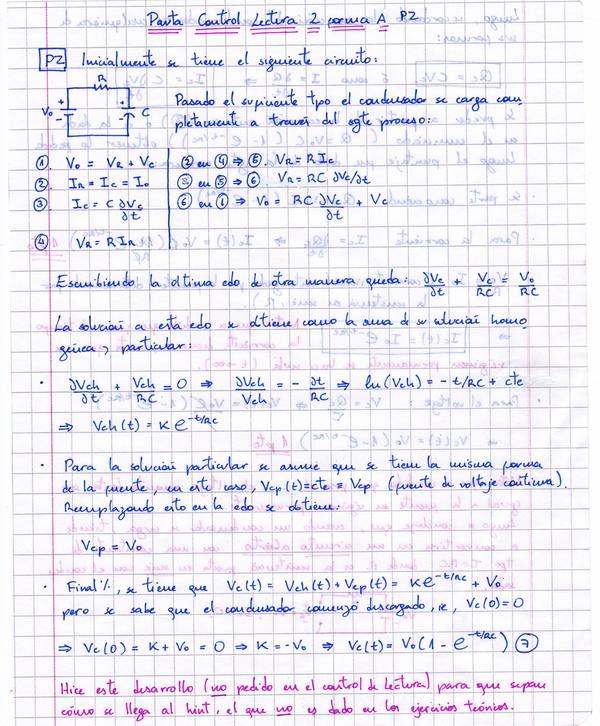 Pauta Control Lectura 2 forma A P2
P2 Inicialmente se tiene el siguiente circuito:
R
V₀ + − + − C
Pasado el suficiente tpo el condensador se carga com
pletamente a través del sgte proceso:
① V₀ = V_R + V_c
② I_R = I_c = I₀
③ I_c = C ∂V_c/∂t
④ V_R = R I_R
② en ④ ⇒ ⑤. V_R = R I_c
③ en ⑤ ⇒ ⑥. V_R = RC ∂V_c/∂t
⑥ en ① ⇒ V₀ = RC ∂V_c/∂t + V_c
Escribiendo la última edo de otra manera queda: ∂V_c/∂t + V_c/RC = V₀/RC
La solución a esta edo se obtiene como la suma de su solución homo
génea y particular:
· ∂V_ch/∂t + V_ch/RC = 0 ⇒ ∂V_ch/V_ch = - ∂t/RC ⇒ ln(V_ch) = -t/RC + cte
⇒ V_ch(t) = K e^{-t/RC}
· Para la solución particular se asume que se tiene la misma forma
de la fuente, en este caso, V_cp(t)=cte = V_cp (fuente de voltaje continua).
Reemplazando esto en la edo se obtiene:
V_cp = V₀
· Final%, se tiene que V_c(t) = V_ch(t) + V_cp(t) = K e^{-t/RC} + V₀
pero se sabe que el condensador comenzó descargado, ie, V_c(0)=0
⇒ V_c(0) = K + V₀ = 0 ⇒ K = -V₀ ⇒ V_c(t) = V₀(1 - e^{-t/RC}) ⑦
Hice este desarrollo (no pedido en el control de lectura) para que sepan
cómo se llega al hint, el que no es dado en los ejercicios teóricos.